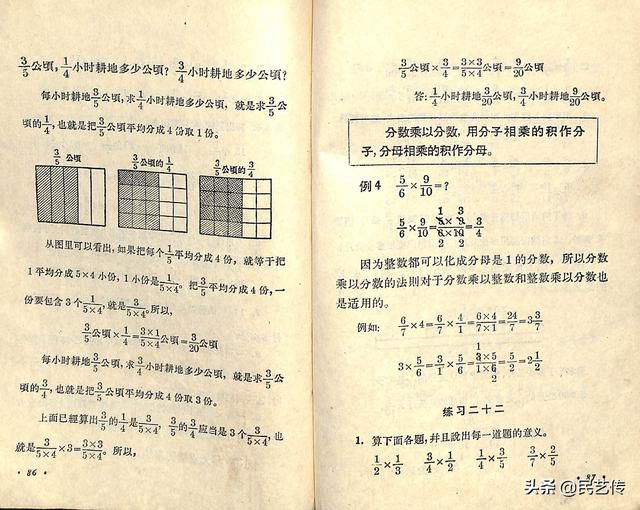 3/5公頃,1/4小时耕地多少公頃? 3/4小时耕地多少公頃?
每小时耕地3/5公頃,求1/4小时耕地多少公頃, 就是求3/5公
頃的1/4,也就是把3/5公頃平均分成4份取1份。
3/5公頃 3/5公頃的1/4 3/5公頃的3/4
从图里可以看出,如果把每个1/5平均分成4份, 就等于把
1平均分成5×4小份,1小份是1/5×4。 把3/5平均分成4份,一
份要包含3个1/5×4,就是3/5×4。所以,
3/5公頃×1/4=3×1/5×4公頃=3/20公頃
每小时耕地3/5公頃,求3/4小时耕地多少公頃, 就是求3/5公
頃的3/4,也就是把3/5公頃平均分成4份取3份。
上面已經算出3/5的1/4是3/5×4, 3/5的3/4应当是3个3/5×4,也
就是3/5×4×3=3×3/5×4。所以,
· 86 ·
3/5公頃×3/4=3×3/5×4公頃=9/20公頃
答:1/4小时耕地3/20公頃,3/4小时耕地9/20公頃。
分数乘以分数, 用分子相乘的积作分
子,分母相乘的积作分母。
例4 5/6×9/10=?
1 3
5/6×9/10=5×9/6×10=3/4
2 2
因为整数都可以化成分母是1的分数, 所以分数
乘以分数的法則对于分数乘以整数和整数乘以分数也
是适用的。
例如: 6/7×4=6/7×4/1=6×4/7×1=24/7=3 3/7
1
3×5/6=3/1×5/6=3×5/1×6=5/2=2 1/2
2
练习二十二
1. 算下面各题,幷且說出每一道题的意义。
1/2×1/3 3/4×1/2 1/4×3/5 3/7×2/5
· 87 ·
头条 @民艺传